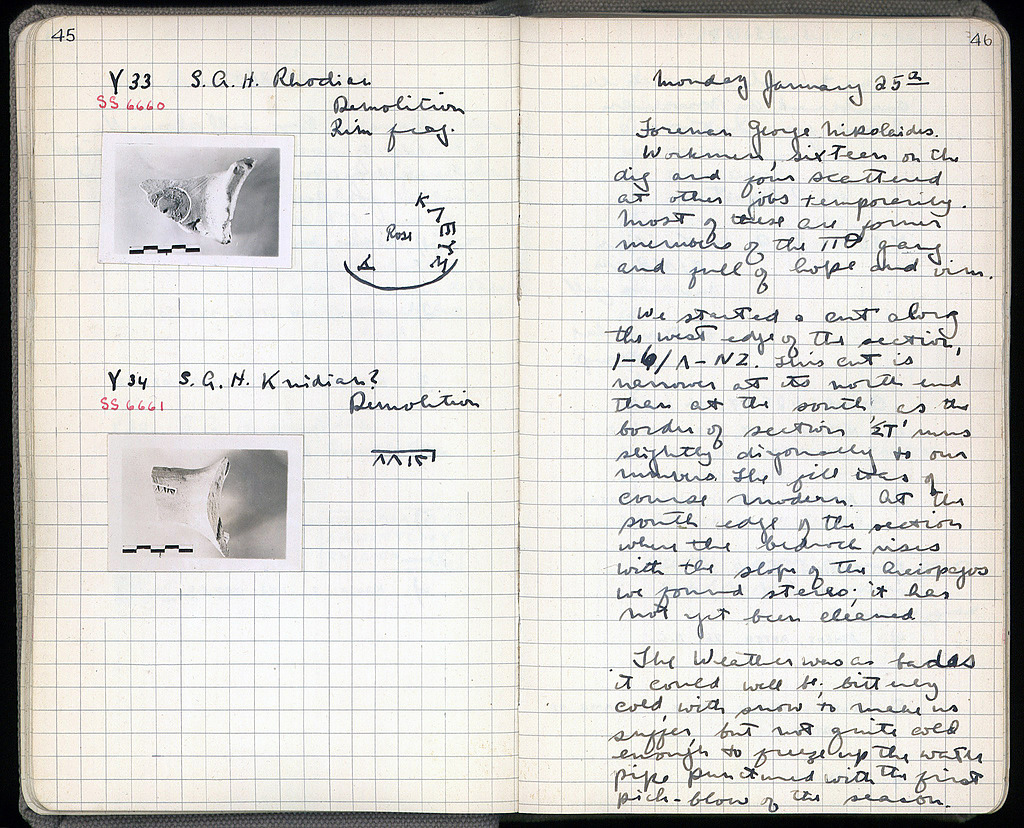 45
Y 33 S.A.H. Rhodian
SS 6660
Demolition
Rim frag.
Rose
Y 34 S.A.H. Knidian?
SS 6661
Demolition
46
Monday January 25th
Foreman George Nikolaides.
Workmen, sixteen on the
dig and four scattered
at other jobs temporarily.
Most of these are former
members of the ΠΘ gang
and full of hope and vim.
We started a cut along
the west edge of the section,
1-6/Λ-NZ. This cut is
narrower at its north end
than at the south, as the
border of section 'ΣT' runs
slightly diagonally to our
numbers. The fill was of
course modern. At the
south edge of the section
where the bedrock rises
with the slope of the Areiopagos
we found stereo; it has
not yet been cleaned
The Weather was as bad as
it could well be, bitterly
cold with snow to make us
suffer, but not quite cold
enough to freeze up the water
pipe punctured with the first
pick-blow of the season.